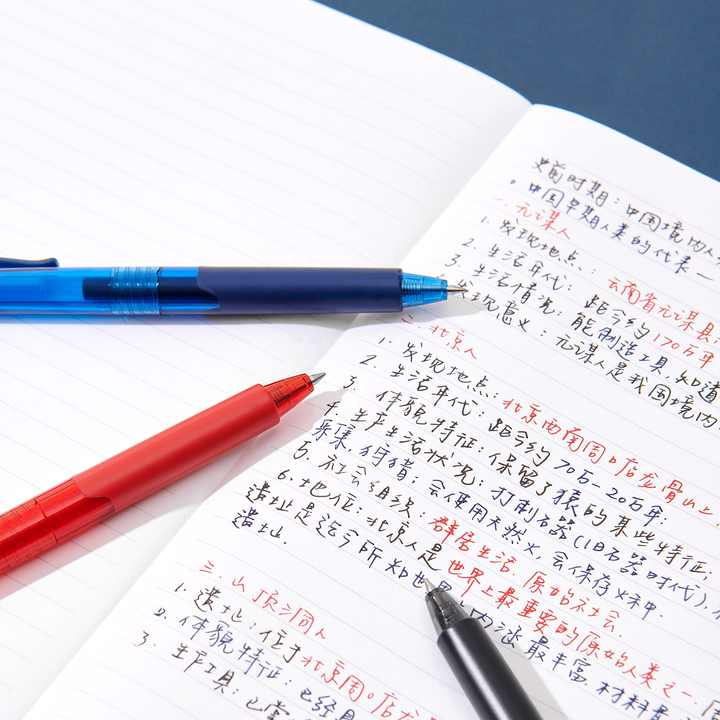 史前时期：中国境内人
。中国早期人类的代表一
一. 元谋人
1. 发现地点：云南省元谋县
2. 生活年代：距今约170万年
3. 生活情况：能制造工具,知道
发现意义：元谋人是我国境内
二. 北京人
1. 发现地点：北京西南周口店龙骨山上
2. 生活年代：距今约70万-20万年
3. 体貌特征：保留了猿的某些特征;
4. 生产生活状况：打制石器(旧石器时代),
采集、狩猎；会使用天然火,会保存火种.
5. 社会组织：群居生活. 原始社会.
6. 地位：北京人是世界上最重要的原始人类之一.
遗址是迄今所知世界内涵最丰富.材料最
遗址.
三. 山顶洞人
1. 遗址：位于北京周口店龙
2. 体貌特征：已经具
3. 生产工具：已掌